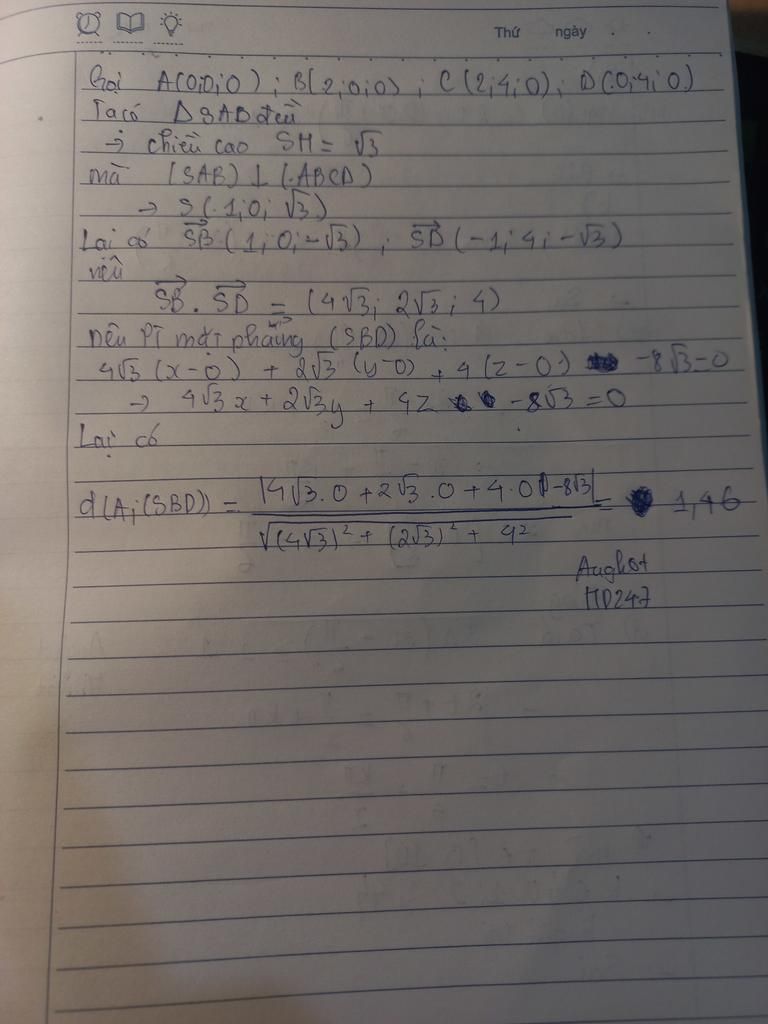 Thứ ngày . .
Gọi A(0;0;0) ; B(2;0;0) ; C(2;4;0) ; D(0;4;0)
Ta có ΔSAB đều
→ chiều cao SH = √3
mà (SAB) ⊥ (ABCD)
→ S(1;0;√3)
Lại có SB→ (1;0;-√3) , SD→ (-1;4;-√3)
nên
SB→ . SD→ = (4√3; 2√3; 4)
nên PT mặt phẳng (SBD) là:
4√3 (x-0) + 2√3 (y-0) + 4(z-0) -8√3=0
→ 4√3x + 2√3y + 4z -8√3 = 0
Lại có
d(A;(SBD)) = |4√3.0 + 2√3.0 + 4.0 -8√3| / √((4√3)² + (2√3)² + 4²) = 1,46
HD247